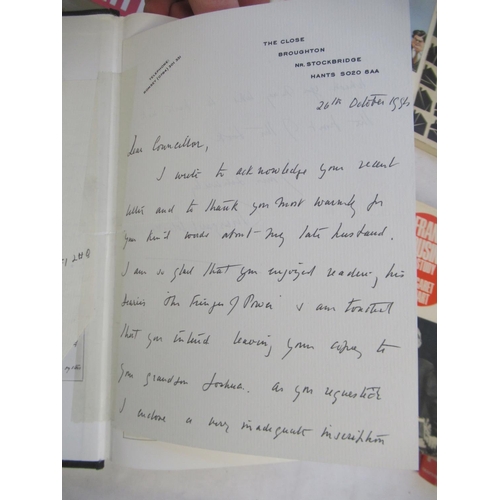 THE CLOSE
BROUGHTON
NR. STOCKBRIDGE
HANTS SO20 8AA
TELEPHONE:
26th October
Dear Councillor,
I wrote to acknowledge your recent
letter and to thank you most warmly for
your kind words about my late husband.
I am so glad that you enjoyed reading his
diaries 'The Fringes of Power' & am touched
that you intend leaving your copy to
your grandson Joshua. As you requested
I enclose a very inadequate inscription